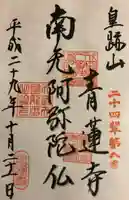 皇跡山
二十四輩第八番
青蓮寺
南无阿弥陀仏
平成二十九年十月二十二日